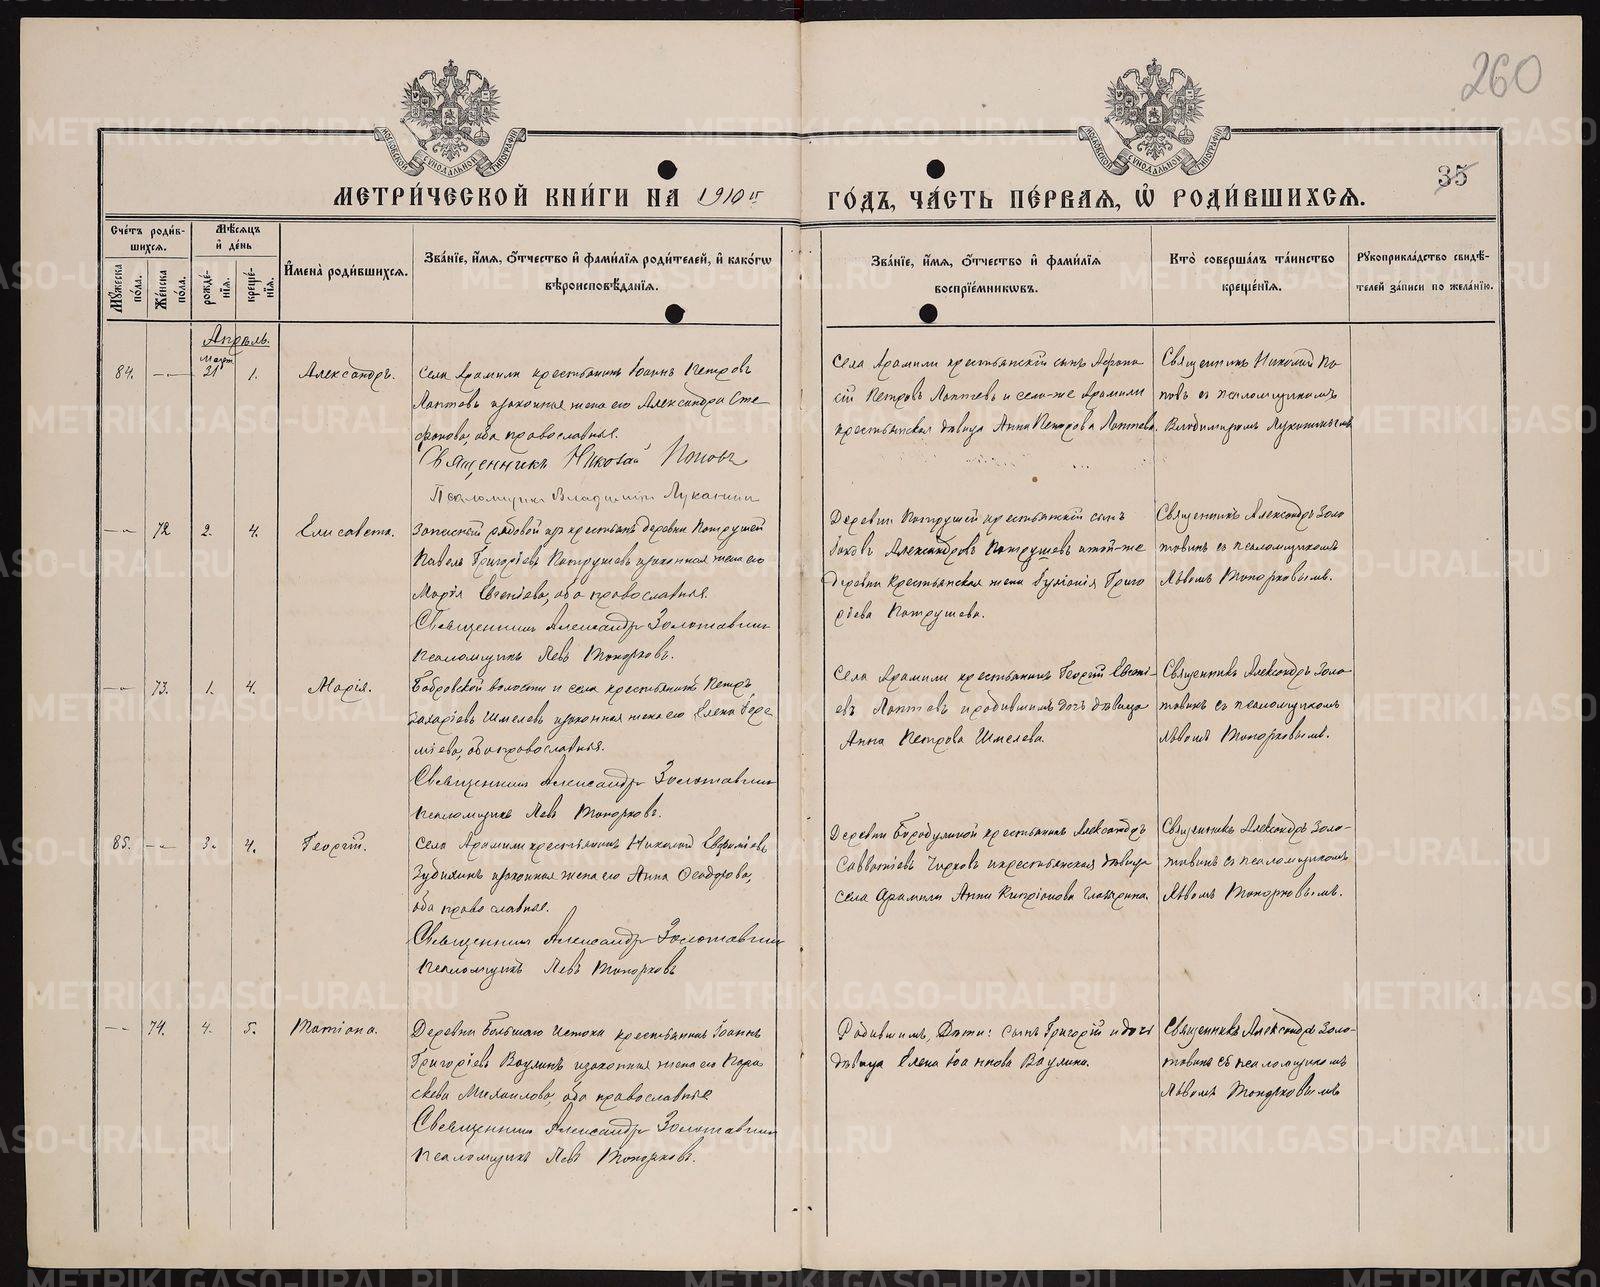 260
МОСКОВСКОЙ СѴНОДАЛЬНОЙ ТИПОГРАФІИ
МОСКОВСКОЙ СѴНОДАЛЬНОЙ ТИПОГРАФІИ
35
МЕТРИ́ЧЕСКОЙ КНИ́ГИ НА 1910й ГО́ДЪ, ЧА́СТЬ ПЕ́РВАЯ, Ѡ҆ РОДИ́ВШИХСЯ.
Сче́тъ роди́вшихся.
Мꙋ́жеска по́ла.
Же́нска по́ла.
Мѣ́сяцъ и҆ де́нь
рожде́нїя.
креще́нїя.
И҆мена̀ роди́вшихся.
Зва́нїе, и҆́мя, ѻ҆́тчество и҆ фами́лїя роди́телей, и҆ како́гѡ вѣроисповѣ́данїя.
Зва́нїе, и҆́мя, ѻ҆́тчество и҆ фами́лїя воспрїе́мникѡвъ.
Кто̀ соверша́лъ та́инство креще́нїя.
Рꙋкоприкла́дство свидѣ́телей за́писи по жела́нїю.
Апрѣль.
84.
Март
31
1.
Александръ.
Села Арамили крестьянинъ Іоаннъ Петровъ
Лаптевъ и законная жена его Александра Сте
фанова, оба православные.
Священникъ Николай Поповъ
Псаломщикъ Владимиръ Луканинъ
Села Арамили крестьянскій сынъ Афона
сій Петровъ Лаптевъ и села-же Арамили
крестьянская дѣвица Анна Петрова Лаптева.
Священникъ Николай По
повъ съ псаломщикомъ
Владимиромъ Луканинымъ
72
2.
4.
Елисавета.
Запасной рядовой изъ крестьянъ деревни Патрушей
Павелъ Григоріевъ Патрушевъ и законная жена его
Марія Евгеніева, оба православные.
Священникъ Александръ Золотавинъ
Псаломщикъ Левъ Топорковъ.
Деревни Патрушей крестьянскій сынъ
Іаковъ Александровъ Патрушевъ и той-же
деревни крестьянская жена Іуліанія Григо
ріева Патрушева.
Священникъ Александръ Золо
тавинъ съ псаломщикомъ
Львомъ Топорковымъ.
73.
1.
4.
Марія.
Бобровской волости и села крестьянинъ Петръ
Захаріевъ Шмелевъ и законная жена его Елена Іере
міева, оба православные.
Священникъ Александръ Золотавинъ
Псаломщикъ Левъ Топорковъ.
Села Арамили крестьянинъ Георгій
евъ Лаптевъ и родившимъ дочь дѣвица
Анна Петрова Шмелева.
Священникъ Александръ Золо
тавинъ съ псаломщикомъ
Львомъ Топорковымъ.
85.
3.
4.
Георгій.
Села Арамили крестьянинъ Николай
Зубихинъ и законная жена его Анна Ѳеодорова,
оба православные.
Священникъ Александръ Золотавинъ
Псаломщикъ Левъ Топорковъ
Деревни Бородулиной крестьянинъ Александръ
Савватіевъ Чирковъ и крестьянская дѣвица
села Арамили Анна Кипріанова
Священникъ Александръ Золо-
тавинъ съ псаломщикомъ
Львомъ Топорковымъ.
74.
4.
5.
Татіана.
Деревни Большаго Истока крестьянинъ Іоаннъ
Григоріевъ Ваулинъ и законная жена его Пара
скева Михаилова, оба православные
Священникъ Александръ Золотавинъ
Псаломщикъ Левъ Топорковъ.
Родившимъ, Дѣти: сынъ Григорій и дочь
дѣвица Елена Іоаннова Ваулина.
Священникъ Александръ Золо-
тавинъ съ псаломщикомъ
Львомъ Топорковымъ
METRIKI.GASO-URAL.RU